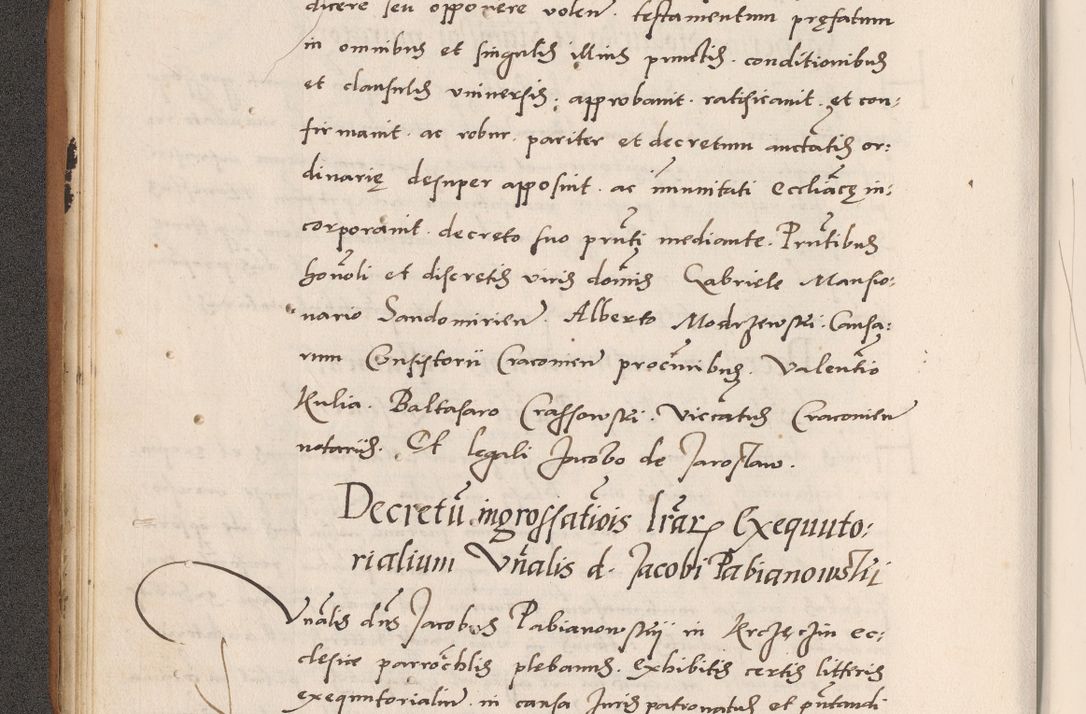 dicere seu opponere volen. testamentum pręfatum
in omnibus et singulis illius punctis. conditionibus
et clausulis universis: approbavit. ratificavit. et con:
firmavit. ac robur. pariter et decretum auctatis or:
dinarię desuper apposuit. ac immunitati eccliacę in:
corporavit. decreto suo prnti mediante. Prntibus
honoli et discretis viris dominis Gabriele Mansio:
nario Sandomirien. Alberto Modrzewski. Causa:
rum Consistorii Cracovien procuribus. Valentio
Kulia. Baltasaro Crassowski. Vicecatus Cracovien
notariis. Et legali Jacobo de Jaroslaw.
Decretu ingrossatiois lrar Exequuto:
rialium Vnalis d. Jacobi Pabianowskii
Vnalis dns Jacobus Pabianowskij in Krczęczin ec:
clesiae parrochlis plebanus. exhibitis certis litteris
exequutorialium in causa Juris patronatus et pntandi